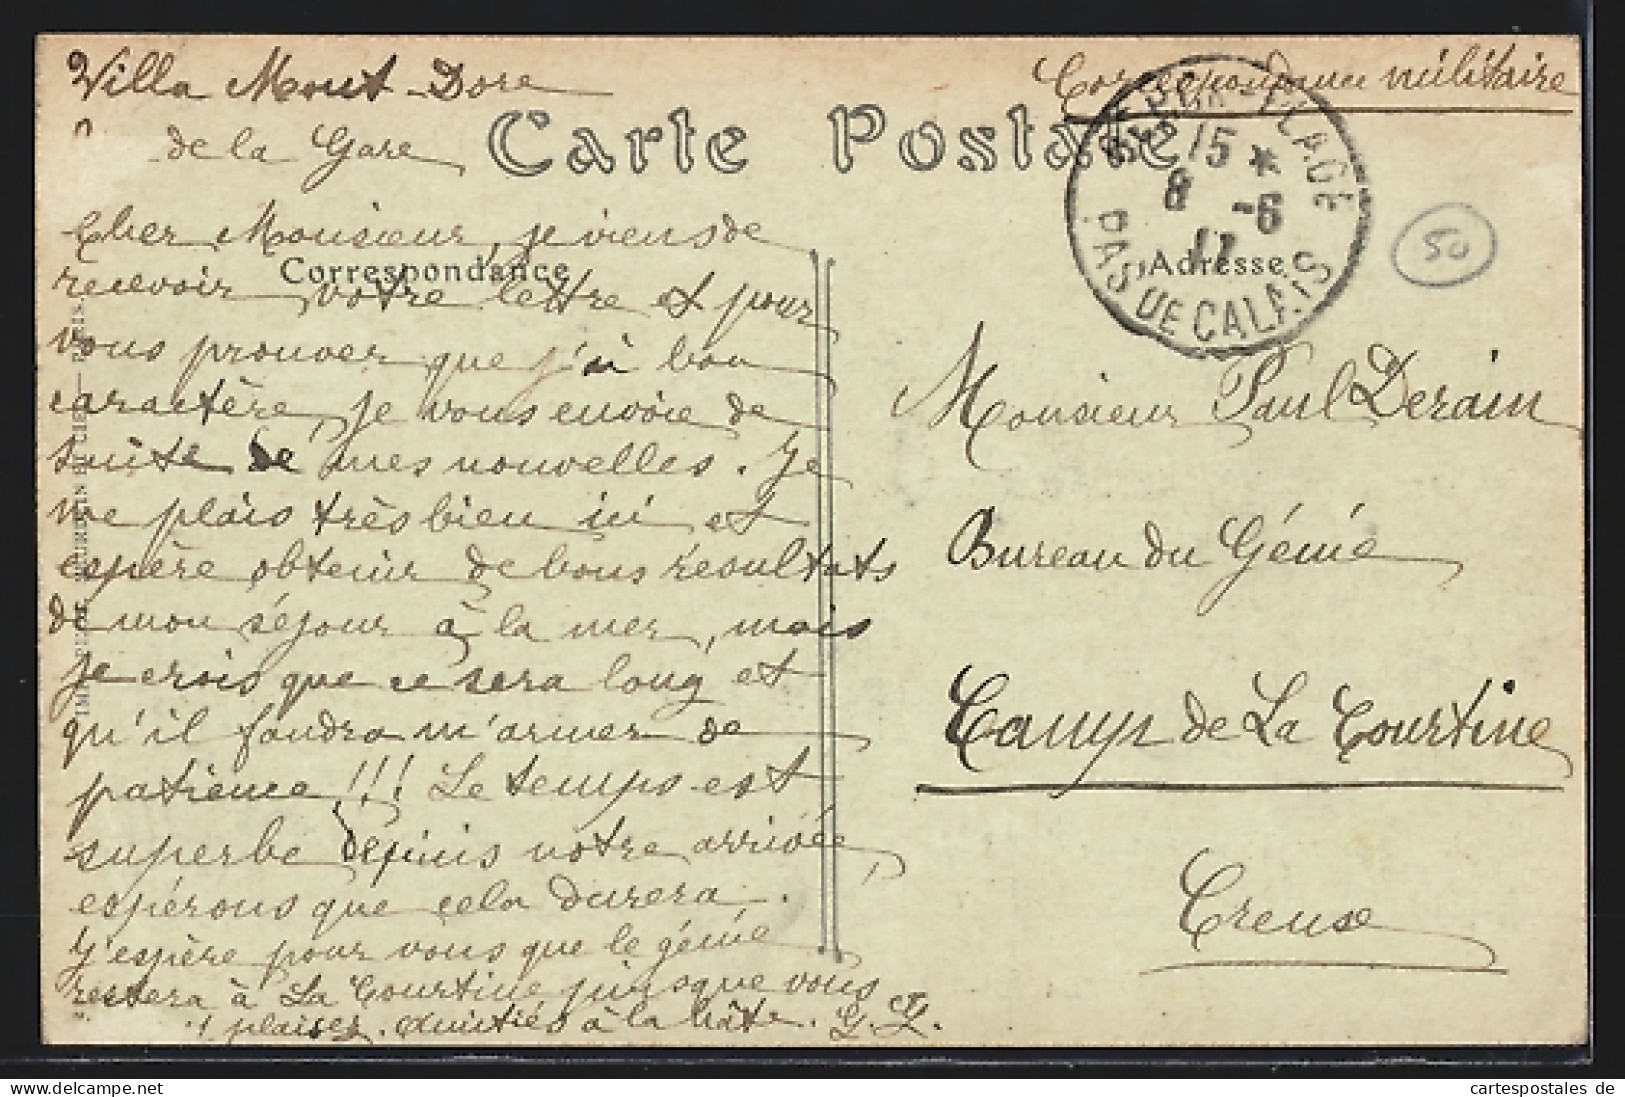 Villa Mont-Dore
de la Gare
Correspondance militaire
Carte Postale
Correspondance
Adresse
15 *
8 -6
17
PLAGE
PAS DE CALAIS
50
Cher Monsieur, je viens de
recevoir votre lettre et pour
vous prouver que j'ai bon
caractère, je vous envoie de
suite de mes nouvelles. Je
me plais très bien ici et
espère obtenir de bons résultats
de mon séjour à la mer, mais
je crois que ce sera long et
qu'il faudra m'armer de
patience !!! Le temps est
superbe depuis notre arrivée,
espérons que cela durera.
J'espère pour vous que le génie
restera à La Courtine puisque vous
vous y plaisez. Amitiés à la hâte. G. L.
Monsieur Paul Derain
Bureau du Génie
Camp de La Courtine
Creuse
cartespostales de